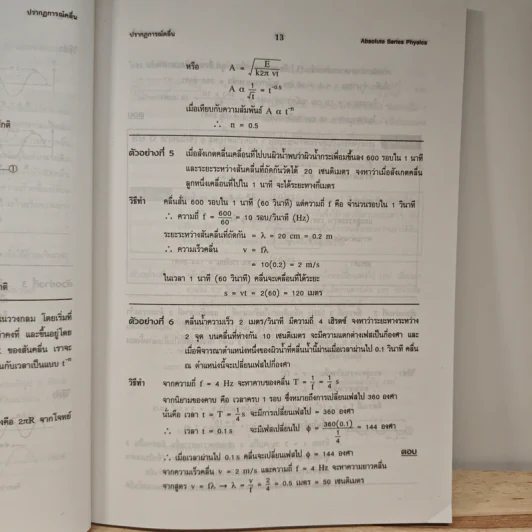 ปรากฏการณ์คลื่น
กติ
กติ
ปรากฏการณ์คลื่น 13 Absolute Series Physics
หรือ A = √(E / k2π vt)
A α 1/√t = t^-0.5
เมื่อเทียบกับความสัมพันธ์ A α t^-n
∴ n = 0.5
ตัวอย่างที่ 5 เมื่อสังเกตคลื่นเคลื่อนที่ไปบนผิวน้ำพบว่าผิวน้ำกระเพื่อมขึ้นลง 600 รอบใน 1 นาที
และระยะระหว่างสันคลื่นที่ถัดกันวัดได้ 20 เซนติเมตร จงหาว่าเมื่อสังเกตคลื่น
ลูกหนึ่งเคลื่อนที่ไปใน 1 นาที จะได้ระยะทางกี่เมตร
วิธีทำ คลื่นสั่น 600 รอบใน 1 นาที (60 วินาที) แต่ความถี่ f คือ จำนวนรอบใน 1 วินาที
∴ ความถี่ f = 600/60 = 10 รอบ/วินาที (Hz)
ระยะระหว่างสันคลื่นที่ถัดกัน = λ = 20 cm = 0.2 m
∴ ความเร็วคลื่น v = fλ
= 10(0.2) = 2 m/s
ในเวลา 1 นาที (60 วินาที) คลื่นจะเคลื่อนที่ได้ระยะ
s = vt = 2(60) = 120 เมตร
ตัวอย่างที่ 6 คลื่นน้ำความเร็ว 2 เมตร/วินาที มีความถี่ 4 เฮิรตซ์ จงหาว่าระยะทางระหว่าง
2 จุด บนคลื่นที่ห่างกัน 10 เซนติเมตร จะมีความแตกต่างเฟสเป็นกี่องศา และ
เมื่อพิจารณาตำแหน่งหนึ่งของผิวน้ำที่คลื่นน้ำนี้ผ่านเมื่อเวลาผ่านไป 0.1 วินาที คลื่น
ณ ตำแหน่งนี้จะเปลี่ยนเฟสไปกี่องศา
วิธีทำ จากความถี่ f = 4 Hz จะหาคาบของคลื่น T = 1/f = 1/4 s
จากนิยามของคาบ คือ เวลาครบ 1 รอบ ซึ่งหมายถึงการเปลี่ยนเฟสไป 360 องศา
นั่นคือ เวลา t = T = 1/4 s จะมีการเปลี่ยนเฟสไป = 360 องศา
∴ เวลา t = 0.1s จะมีเฟสเปลี่ยนไป φ = 360(0.1) / (1/4) = 144 องศา
∴ เมื่อเวลาผ่านไป 0.1s คลื่นจะเปลี่ยนเฟสไป φ = 144 องศา ตอบ
จากความเร็วคลื่น v = 2 m/s และความถี่ f = 4 Hz จะหาความยาวคลื่น
จากสูตร v = fλ → λ = v/f = 2/4 = 0.5 เมตร = 50 เซนติเมตร